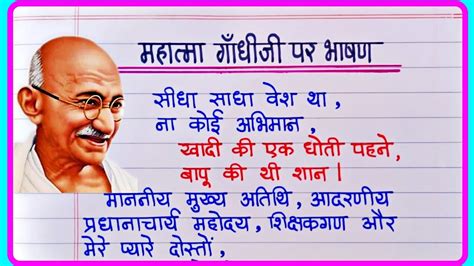 महात्मा गाँधीजी पर भाषण
सीधा साधा वेश था,
ना कोई अभिमान,
खादी की एक धोती पहने,
बापू की थी शान।
माननीय मुख्य अतिथि, आदरणीय
प्रधानाचार्य महोदय, शिक्षकगण और
मेरे प्यारे दोस्तों,